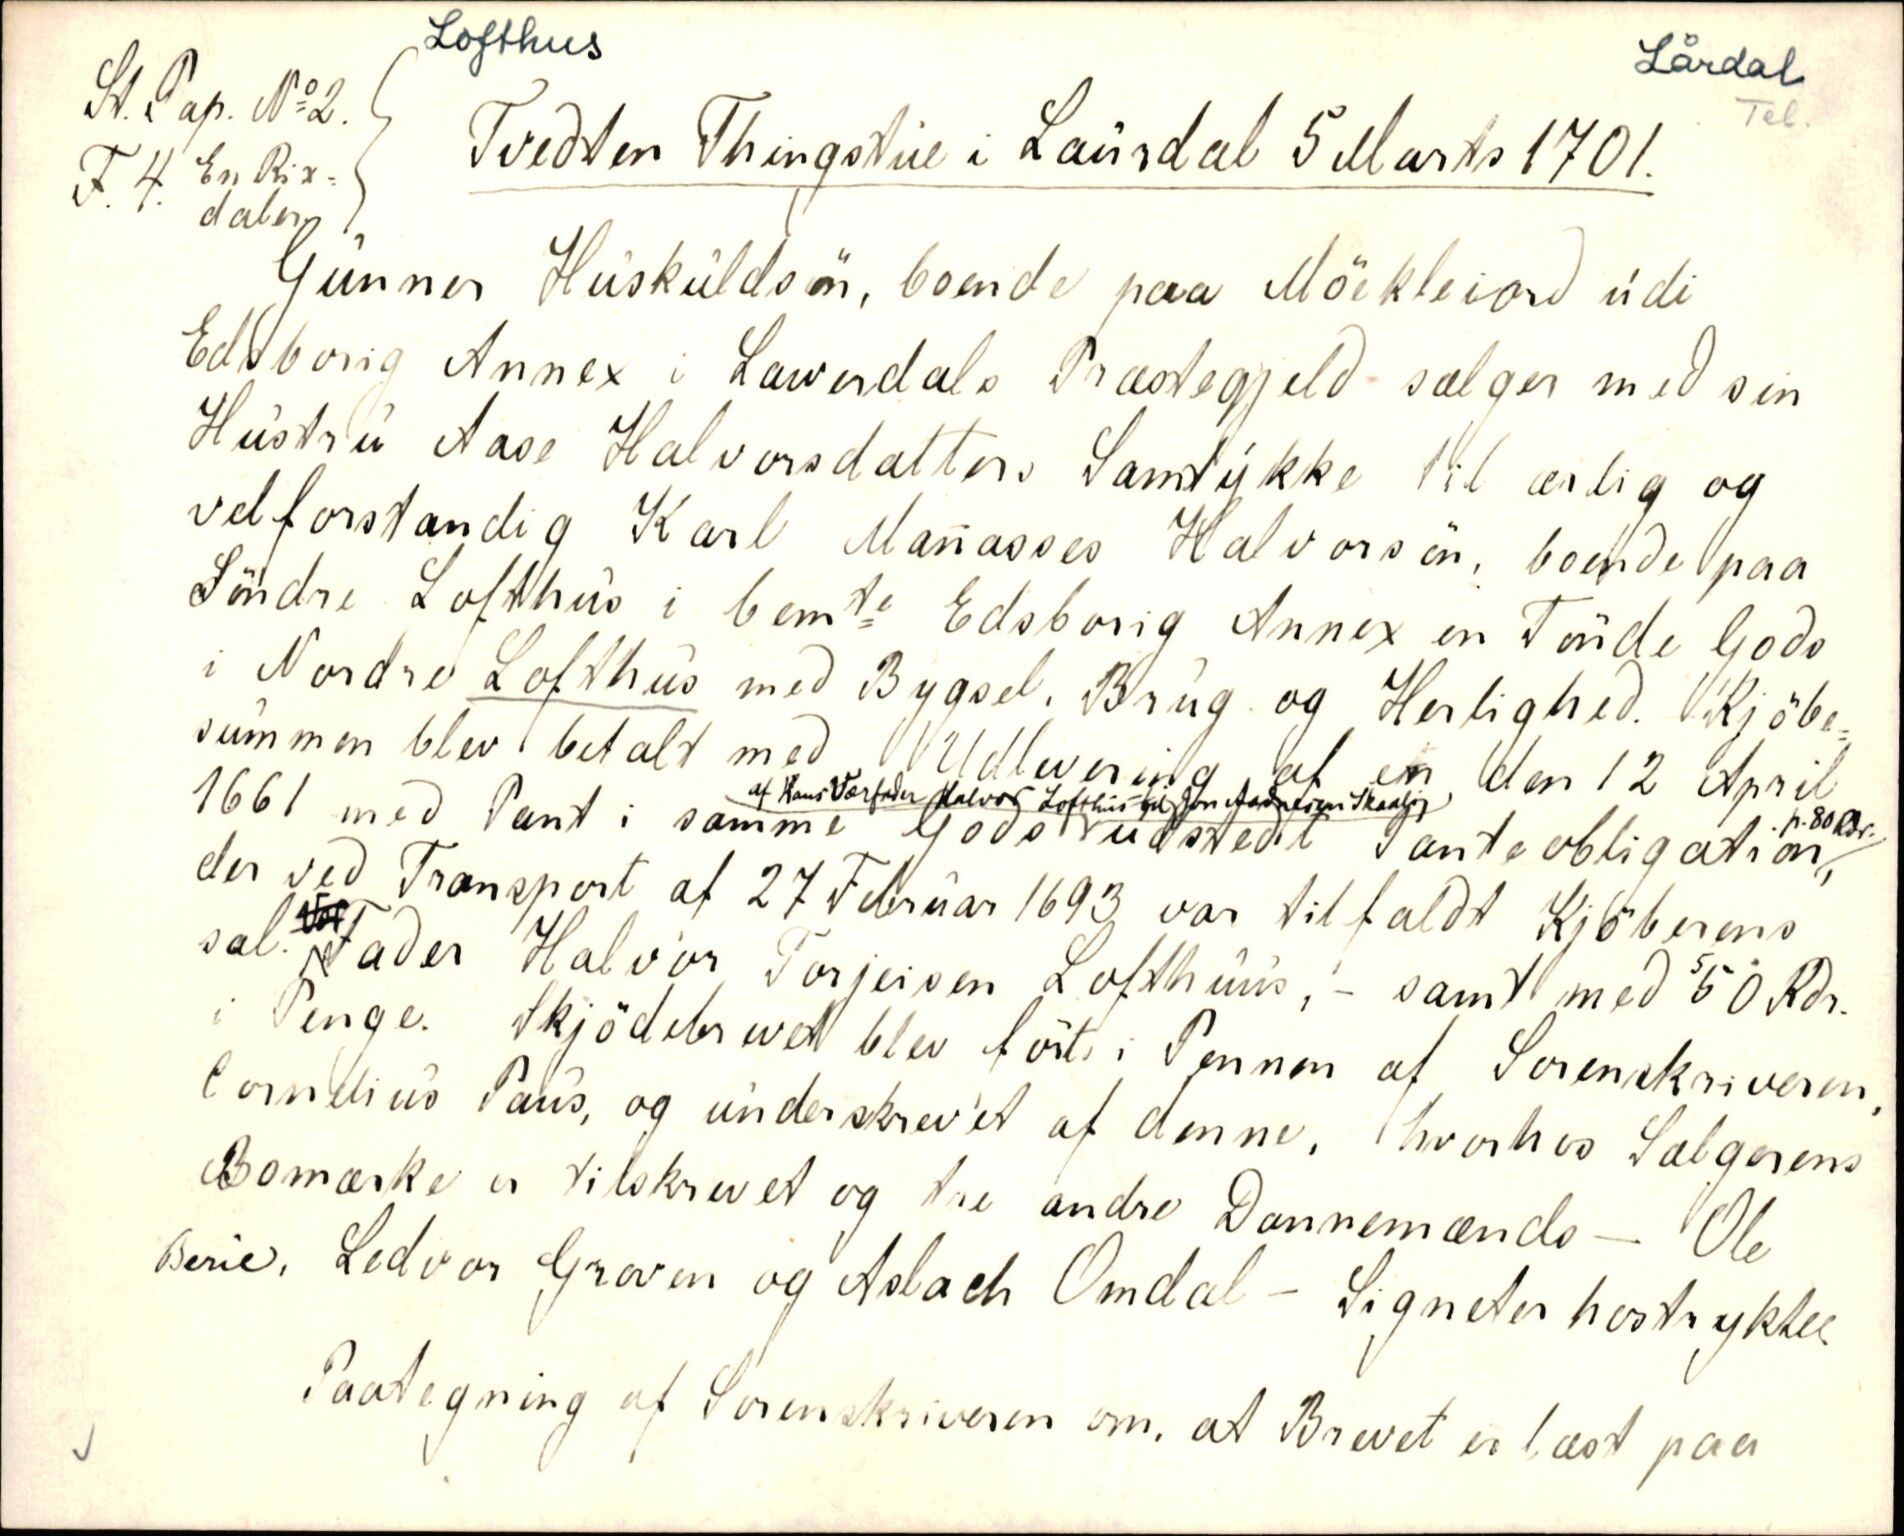 Lofthus
Lårdal
Tel.
St. Pap. No 2.
F. 4. En Rix-
daler
Tvedten Thingstue i Laurdal 5 Marts 1701.
Gunner Huskuldsön, boende paa Möekleiord udi
Edsborig Annex i Lawerdals Præstegjeld sælger med sin
Hustru Aase Halvorsdatters Samtykke til ærlig og
velforstandig Karl Mañasses Halvorsön, boende paa
Söndre Lofthus i bemte Edsborig Annex en Tönde Gods
i Nordre Lofthus med Bygsel, Brug og Herlighed. Kjöbe-
summen blev betalt med Udlevering af en den 12 April
af Hans Værfader Halvor Lofthus til Jon
1661 med Pant i samme Gods udstedt Panteobligation, p. 80 Rdr.
der ved Transport af 27 Februar 1693 var tilfaldt Kjöberens
sal. Fader Halvor Torjeisen Lofthuus, - samt med 50 Rdr.
i Penge. Skjödebrevet blev fört i Pennen af Sorenskriveren,
Cornelius Paus, og underskrevet af denne, hvorhos Sælgerens
Bomærke er tilskrevet og tre andre Dannemænds — Ole
Berie, Ledvor Groven og Aslach Omdal - Signeter hostrykte.
Paategning af Sorenskriveren om, at Brevet er læst paa